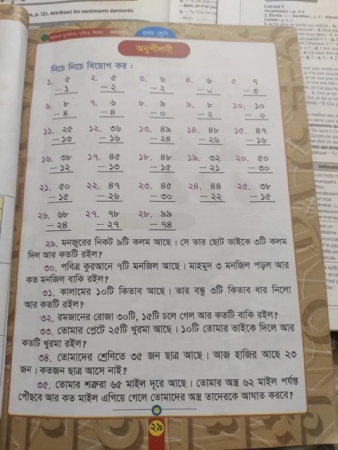 অনুশীলনী
নিচে নিচে বিয়োগ কর :
১. ৫ ২. ৫ ৩. ৬ ৪. ৬ ৫. ৭
–১ –২ –২ –৩
৬. ৮ ৭. ৬ ৮. ৯ ৯. ৮ ১০. ১০
–৪ –৪ –০ –২ –০
১১. ২৫ ১২. ৩৬ ১৩. ৪৯ ১৪. ৪৮ ১৫. ৪৭
–১৩ –১৬ –২৪ –২৬ –১৬
১৬. ৩৮ ১৭. ৪৫ ১৮. ৪৮ ১৯. ৩২ ২০. ৫০
–১২ –১৩ –১৫ –২১ –৩০
২১. ৫০ ২২. ৪৭ ২৩. ৪৫ ২৪. ৪৪ ২৫. ৩৮
–১৫ –২৬ –৩০ –২২ –১৫
২৬. ৬৮ ২৭. ৭৮ ২৮. ৯৯
–২৪ –২৭ –৭৪
২৯. মনজুরের নিকট ৯টি কলম আছে। সে তার ছোট ভাইকে ৩টি কলম
দিল আর কতটি রইল?
৩০. পবিত্র কুরআনে ৭টি মনজিল আছে। মাহমুদ ৩ মনজিল পড়ল আর
কত মনজিল বাকি রইল?
৩১. কালামের ১০টি কিতাব আছে। তার বন্ধু ৩টি কিতাব ধার নিলো
আর কতটি রইল?
৩২. রমজানের রোজা ৩০টি, ১৫টি চলে গেল আর কতটি বাকি রইল?
৩৩. তোমার প্লেটে ২৫টি খুরমা আছে। ১০টি তোমার ভাইকে দিলে আর
কতটি খুরমা রইল?
৩৪. তোমাদের শ্রেণিতে ৩৫ জন ছাত্র আছে। আজ হাজির আছে ২৩
জন। কতজন ছাত্র আসে নাই?
৩৫. তোমার শত্রুরা ৬৫ মাইল দূরে আছে। তোমার অস্ত্র ৬২ মাইল পর্যন্ত
পৌছবে আর কত মাইল এগিয়ে গেলে তোমাদের অস্ত্র তাদেরকে আঘাত করবে?
২৯